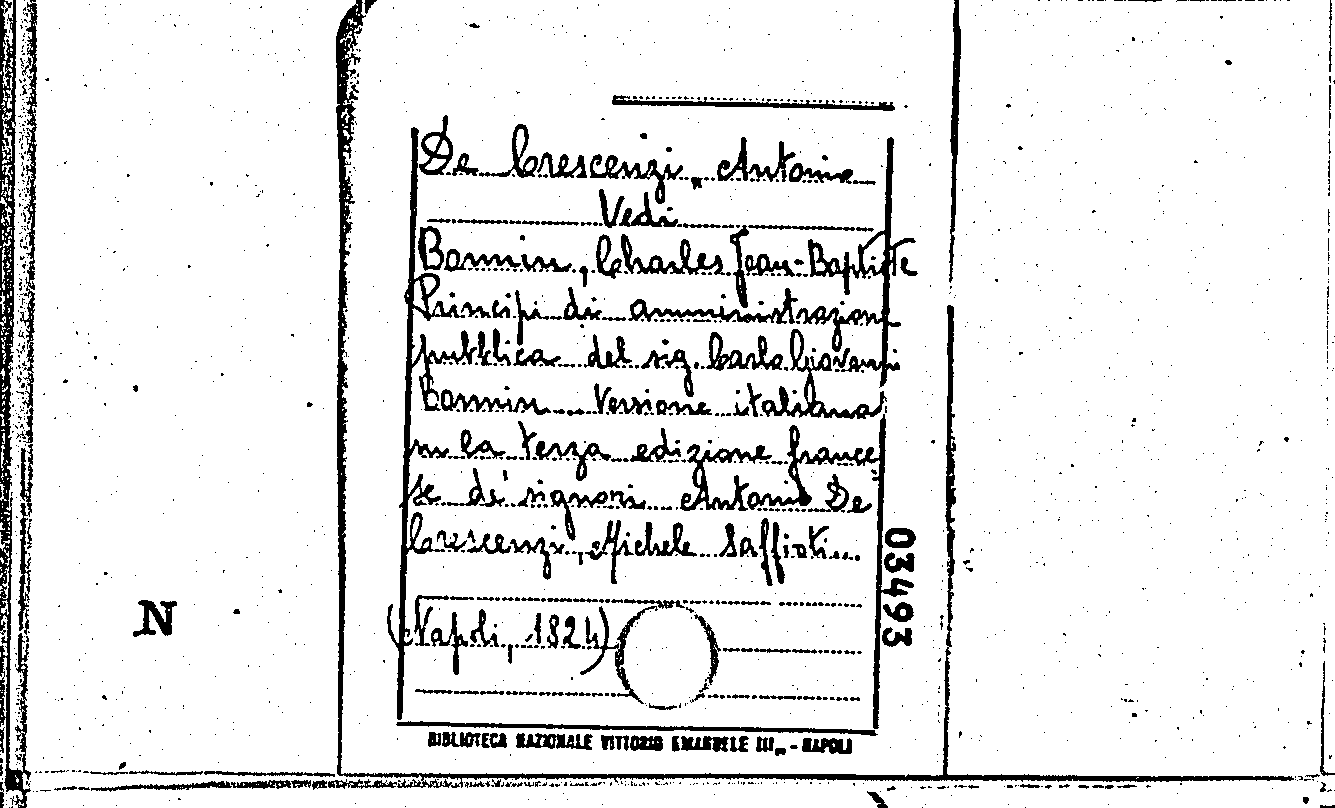 De Crescenzi, Antonio
Vedi
Bonnin, Charles Jean-Baptiste
Principi di amministrazione
pubblica del sig. Carlo Giovanni
Bonnin... Versione italiana
su la terza edizione france
se de' signori Antonio De
Crescenzi, Michele Saffioti...
(Napoli, 1824)
03493
N
BIBLIOTECA NAZIONALE VITTORIO EMANUELE III„ - NAPOLI